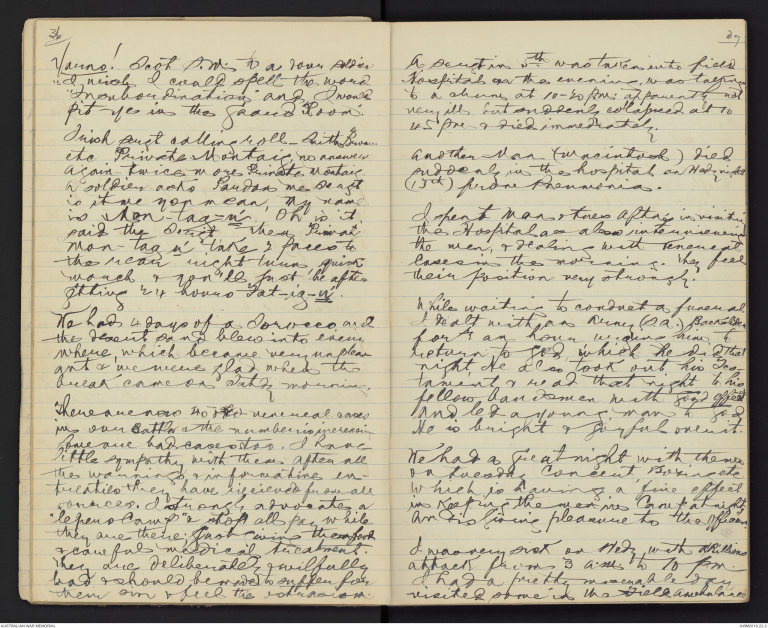 36
Yarns! Scot S.M. to a dour soldier
"I wish I could spell the word
"Insubordination" and I would
pit ye in the Guard Room".
Irish Sergt calling roll - Smith Brown
etc Private Montaig, no answer
again twice more Private Montaig
a soldier asks Pardon me Sergt
is it me you mean, my name
is Mon-tag-u", "Oh is it
said the Sergt then Private
Mon-tag-u take 2 paces to
the rear right turn quick
march & you'll just be after
gitting 24 hours "Fat-ig-u".
We had 4 days of a Sirocco and
the desert sand blew into every
where, which became very unpleas
ant & we were glad when the
break came on Saty morning.
There are now 40 venereal cases
in our Battn & the number is increasing
some are bad cases too. I have
little sympathy with them after all
the warnings & information en-
treaties they have received from all
sources. I strongly advocate a
"lepers Camp" & stop all pay while
they are there, just giving them
& careful medical treatment.
They are deliberately & wilfully
bad & should be made to suffer for
their sin & feel the
37
A Sergt in 5th was taken into field
Hospital in the evening, was talking
to a chum at 10-20 pm. apparently not
very ill but suddenly collapsed at 10
45 pm & died immediately.
Another Man (Macintosh) died
suddenly in the hospital on Wedy night
(13th) from Pneumonia.
I spent Mons & Tues Aftns in visiting
the Hospital as also interviewing
the men, & dealing with venereal
cases in the morning. They feel
their position very strongly.
While waiting to conduct a funeral
I dealt with an Army (S.A.) Bandsman
for an hour urging him to
return to God, which he did that
night. He also took out his Tes-
tament & read that night to his
fellow bandsmen with good effect
and led a young man to God
He is bright & joyful over it.
We had a great night with the men
on Tuesday, Concert, Boxing etc
which is having a fine effect
in keeping the men in Camp at night
and is giving pleasure to the Officers.
I was very sick on Wedy with
attack from 3 a.m. to 10 pm.
I had a pretty miserable day
visited some in the Field Ambulance
AUSTRALIAN WAR MEMORIAL